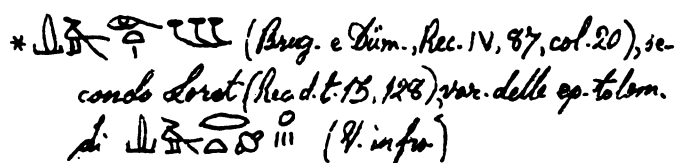 * (Brug. e Düm., Rec. IV, 87, col. 20), se-
condo Loret (Rec. d. t. 15, 128), var. delle ep. tolem.
di (V. infra)